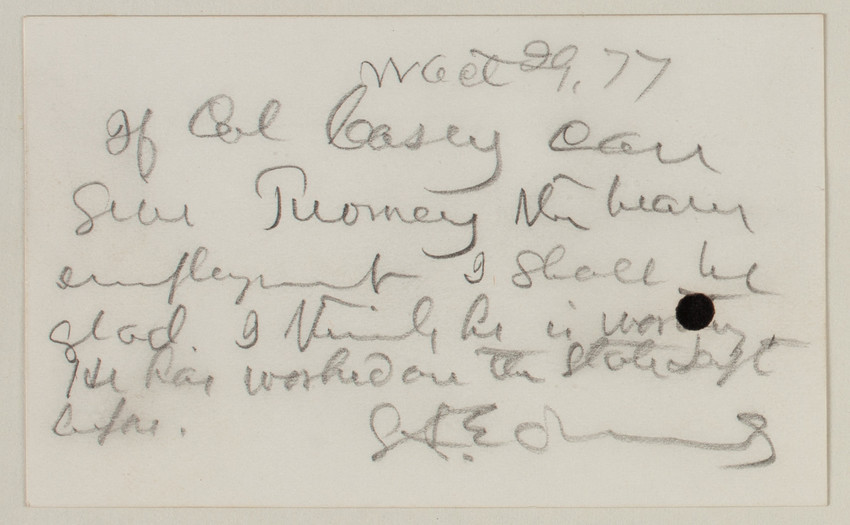 Oct 29, 77
If Col Casey can
give Twomey the bearer
employment I shall be
glad. I think he is worthy
He has worked on the State Dept
before.